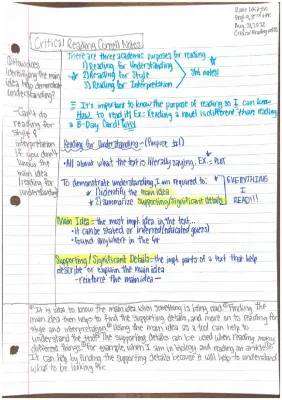 Critical Reading Cornell Notes
There are three academic purposes for reading
1) Reading for Understanding
2) Reading for Style
3) Reading for Interpretation
3rd notes!
It's important to know the purpose of reading so I can know
How to read it! Ex: Reading a novel is different than reading
a B-Day Card!
① How does
identifying the main
idea help demonstrate
understanding?
- Can't do
reading for
style &
interpretation
if you don't
know the
main idea
(reading for
understanding)
Reading for Understanding -
• All about what the text is literally saying. EX. = Plot
To demonstrate understanding I am required to:
1) Identify the main idea
2) Summarize Supporting/Significant details
EVERYTHING
I
READ!!!
Main Idea = the most impt. idea in the text...
• it can be stated or inferred (educated guess)
• found anywhere in the
Supporting/Significant Details = the impt parts of a text that help
describe or explain the main idea
- reinforce the main idea -
It is ideal to know the main idea when something is being read. Finding the
main idea then helps to find the supporting details, and more on to reading for
style and interpretation. Using the main idea as a tool can help to
understand the text. The supporting details can be used when reading many
different things. For example, when I am in biology and reading an article,
it can help by finding the supporting details because it will help to understand
what to be